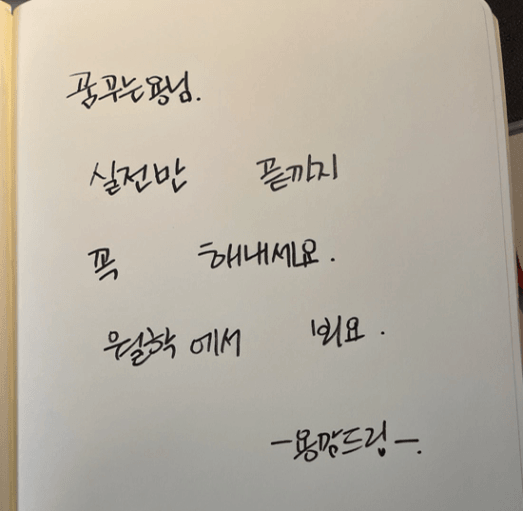 꿈꾸는용님.
실전반 끝까지
꼭 해내세요.
월학에서 봬요.
-용맘드림-.